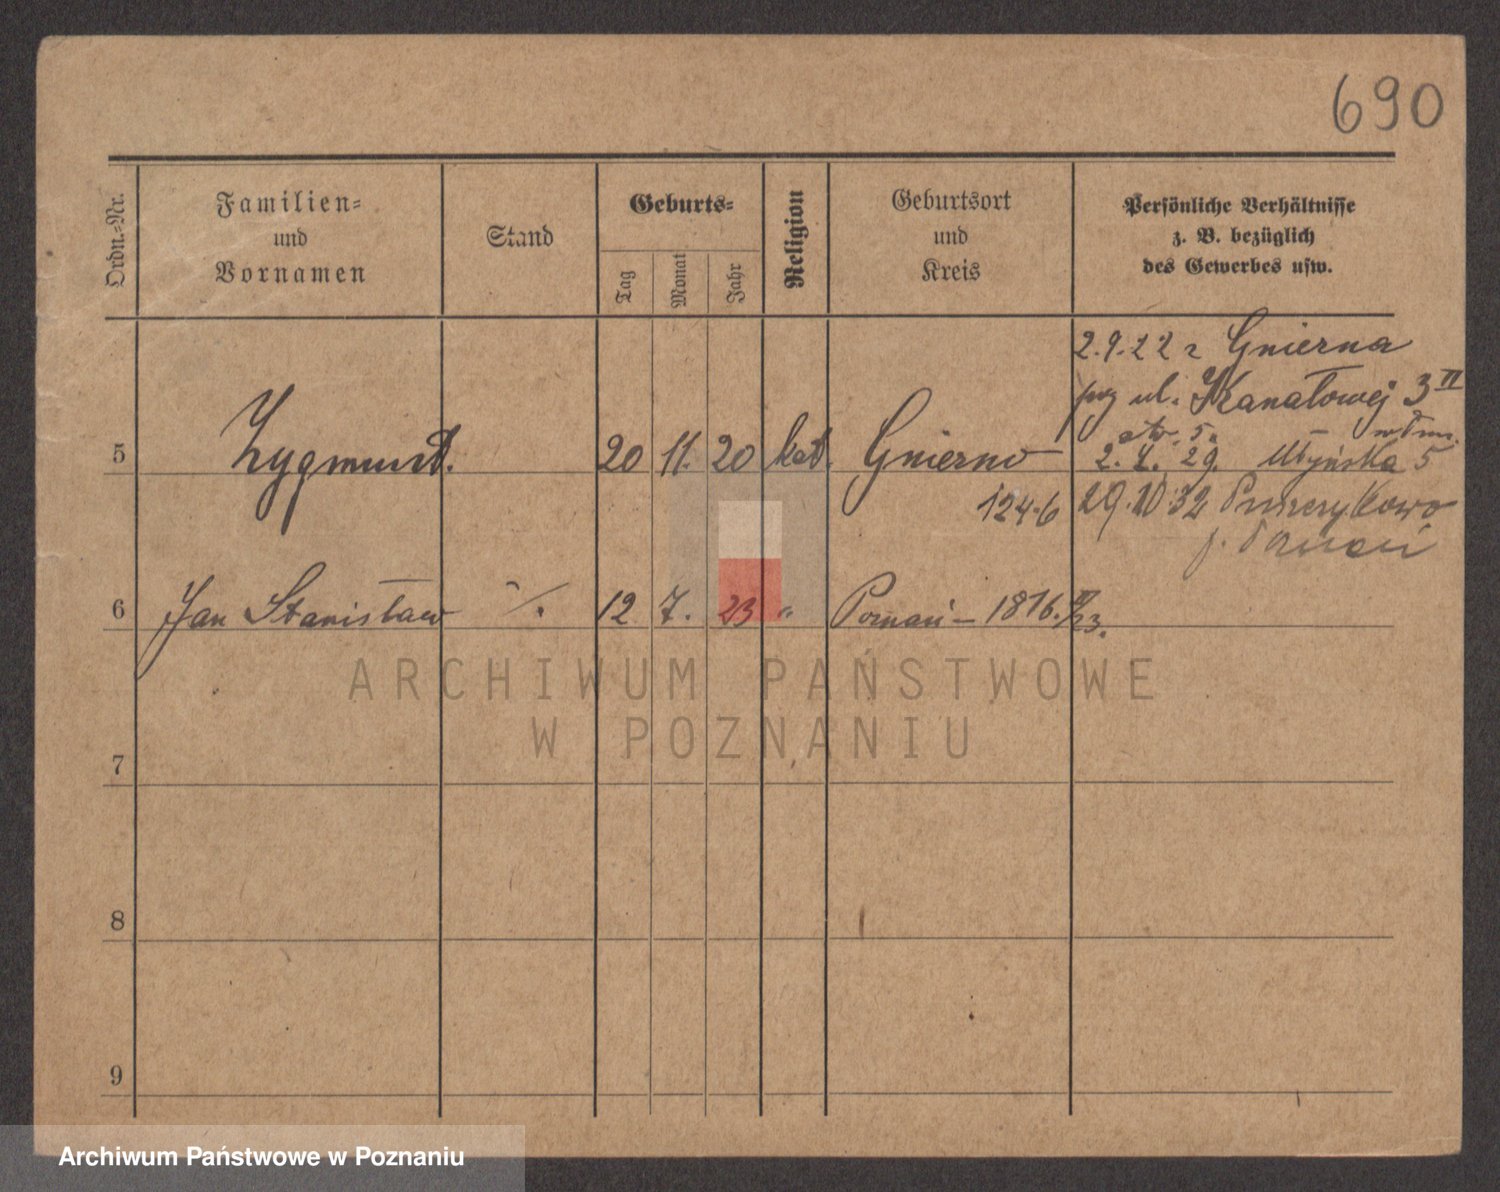 690
Ordn.-Nr.
Familien-
und
Vornamen
Stand
Geburts-
Tag
Monat
Jahr
Religion
Geburtsort
und
Kreis
Persönliche Verhältnisse
z. B. bezüglich
des Gewerbes usw.
2.9.22 z Gniezna
przy ul. Kanałowej 3 II
5 Zygmunt. 20 11. 20 kat. Gniezno
2. 29. Młyńska 5
124-6 29. 32 Puszczykowo
p. Poznań
6 Jan Stanisław ./. 12 7. 23 " Poznań - 1816. IV/23.
7
8
9
ARCHIWUM PAŃSTWOWE
W POZNANIU
Archiwum Państwowe w Poznaniu